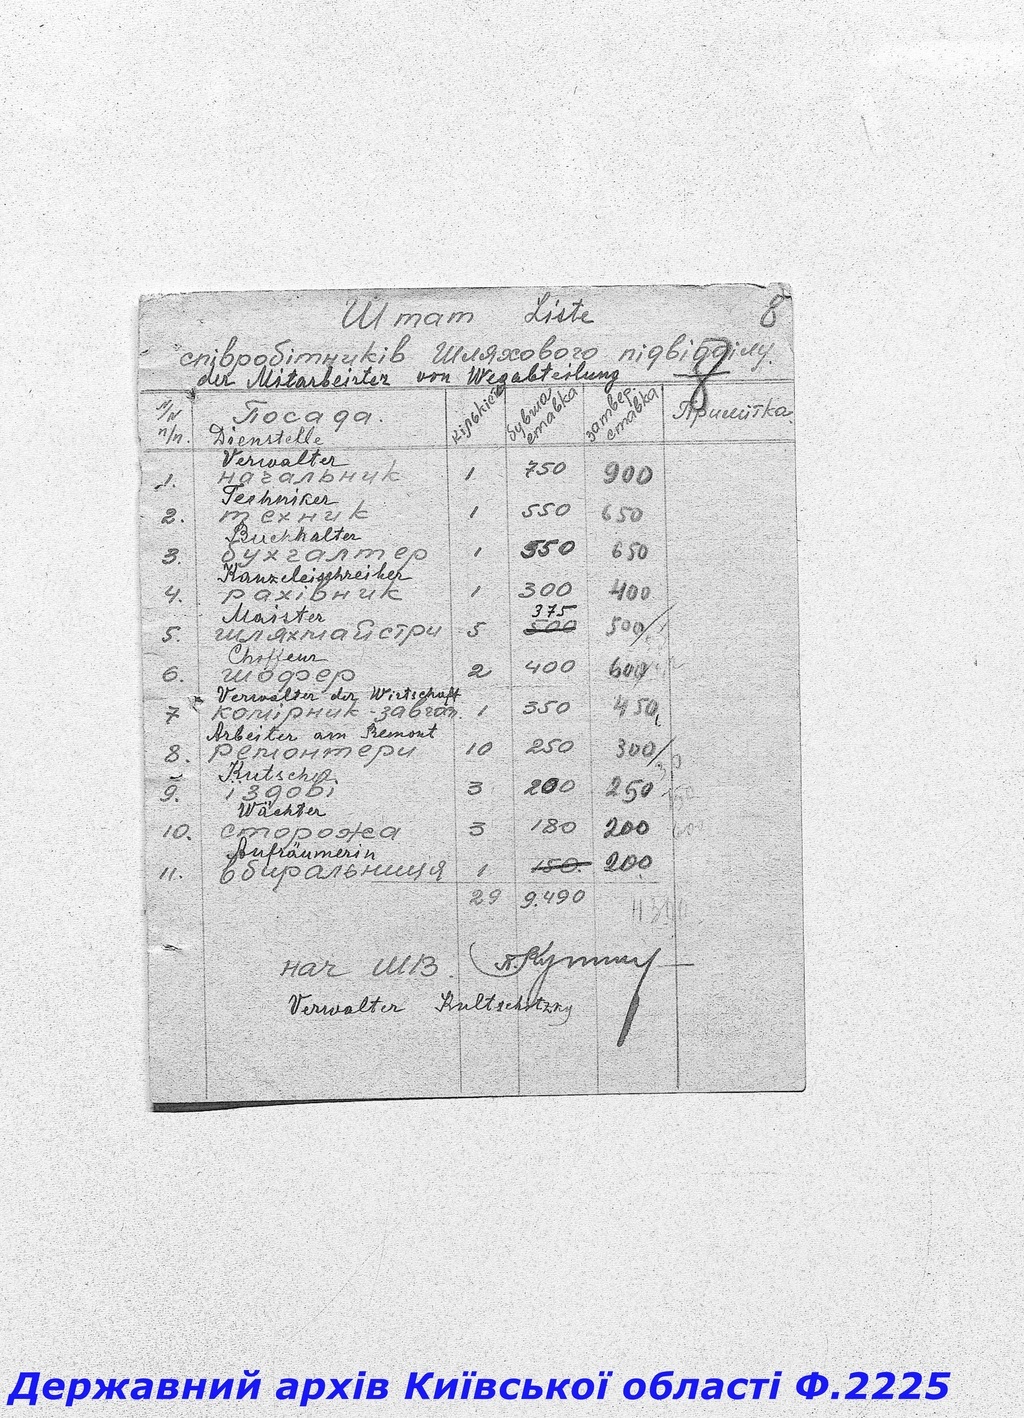 8
Штат Liste
співробітників Шляхового підвідділу.
der Mitarbeister von Wegabteilung
8
N/N п/п. Посада. Dienstelle кількість бувша ставка затвер. ставка Примітка
Verwalter
1. начальник 1 750 900
Techniker
2. технік 1 550 650
Buchhalter
3. бухгалтер 1 550 650
Kanzeleischreiber
4. рахівник 1 300 400
Maister 375
5. шляхмайстри 5 500 500/
Choffeur
6. шофер 2 400 600
Verwalter der Wirtschaft
7 комірник-завгосп. 1 350 450
Arbeiter am Remont
8. ремонтери 10 250 300/
Kutscher
9. їздові 3 200 250
Wächter
10. сторожа 3 180 200
Aufräumerin
11. вбиральниця 1 150. 200.
29 9.490
нач ШВ.
Verwalter Kultschitzky
Державний архів Київської області Ф.2225